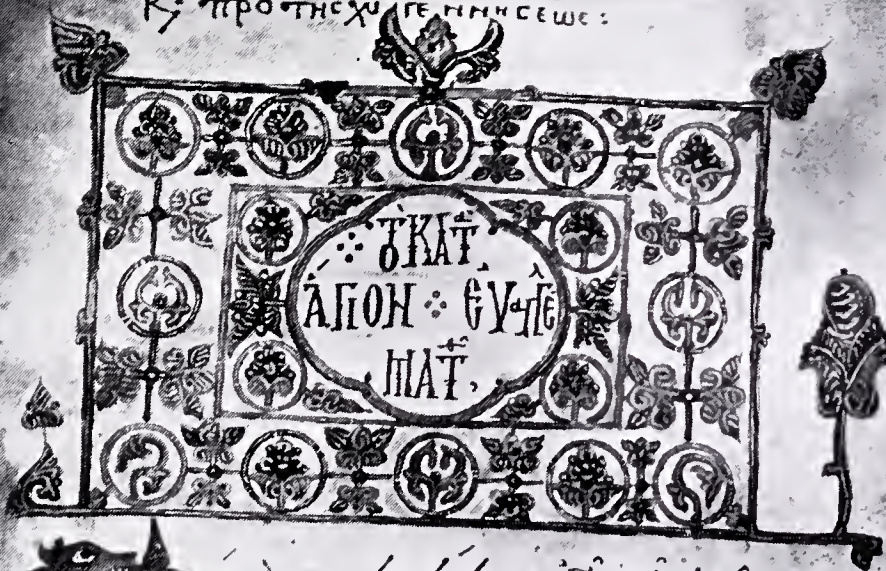 Κυ πρὸ τῆς χυ γεννήσεως :
⁘ Τὸ ΚΑΤ
ἍΓΙΟΝ ⁘ ΕΥαΓΓΕλ
ΜΑΤθ,